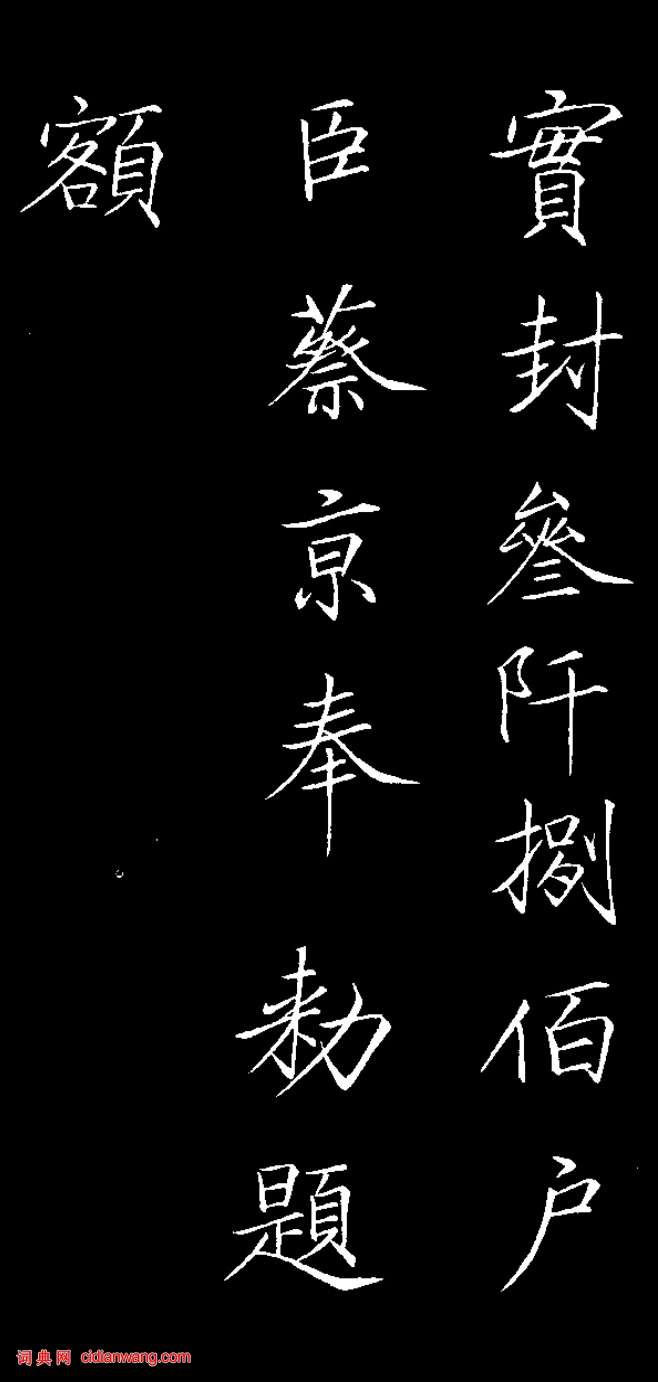 實封叄阡捌佰户
臣蔡京奉敕題
額
词典网 cidianwang.com